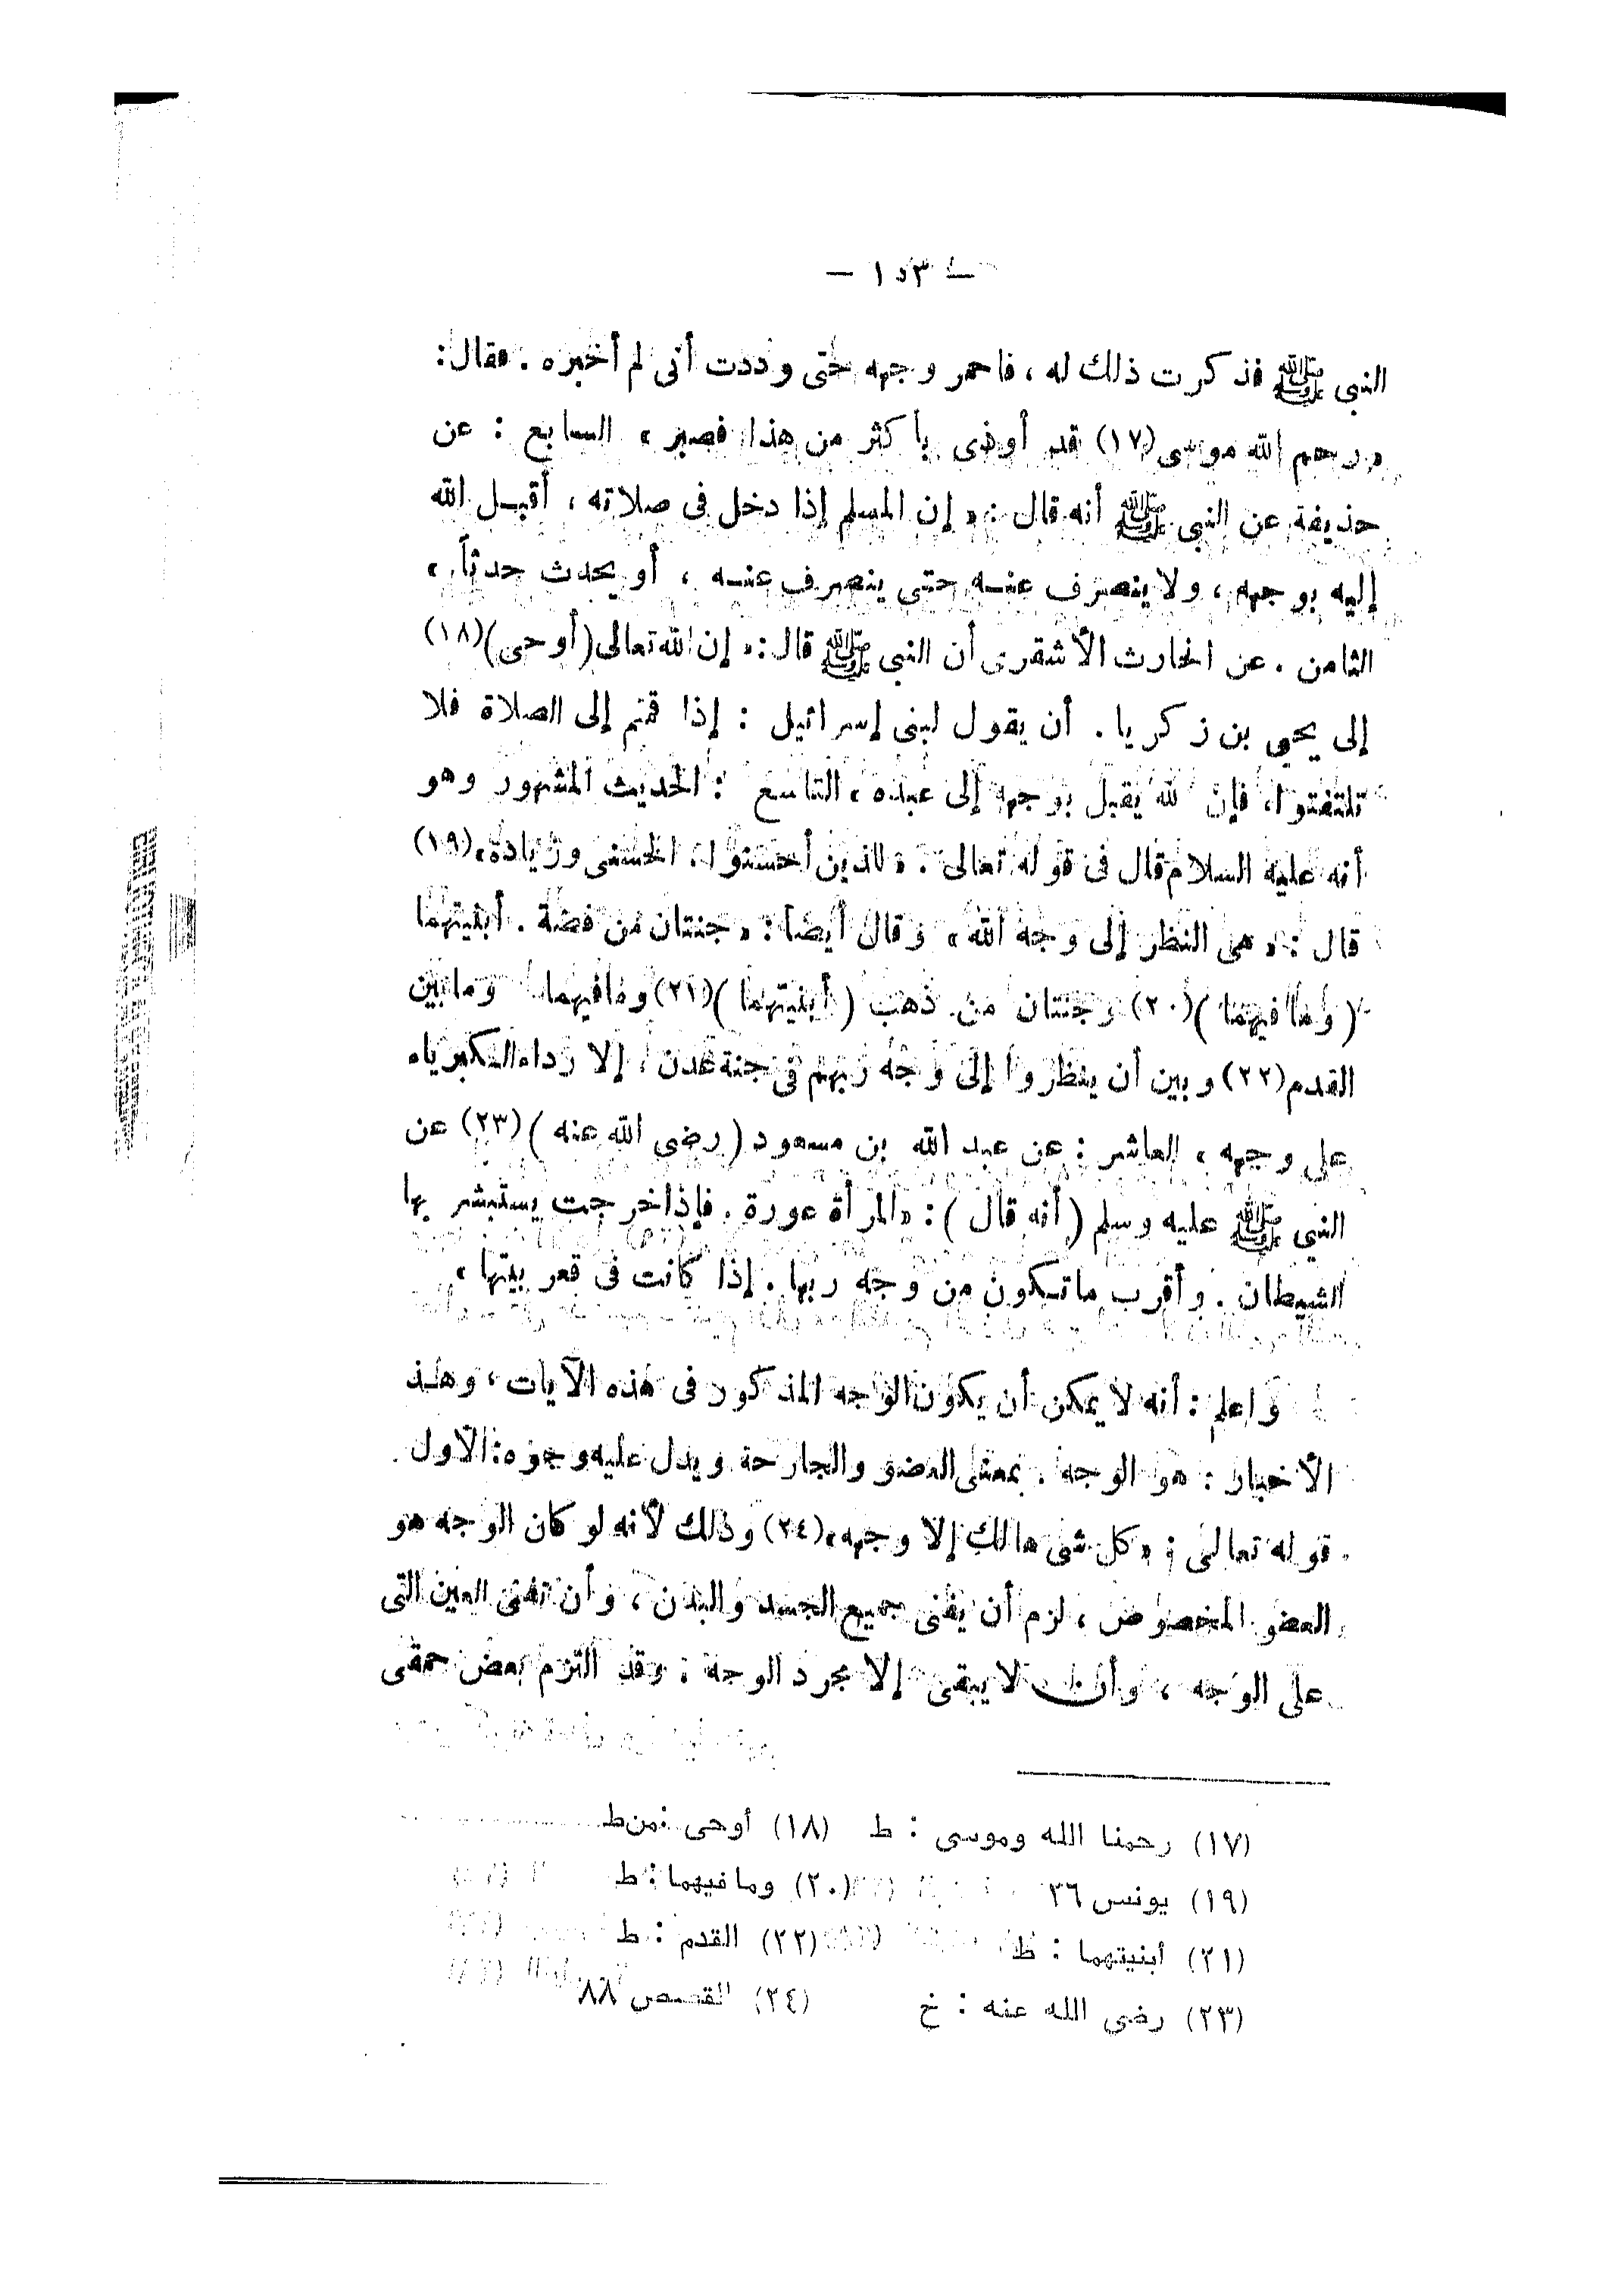 — ١٥٣ —
النبى ﷺ فذكرت ذلك له ، فاحمر وجهه حتى وددت أنى لم أخبره . فقال:
« رحم الله موسى(١٧) قد أوذى بأكثر من هذا فصبر » السابع : عن
حذيفة عن النبى ﷺ أنه قال : « إن المسلم إذا دخل فى صلاته ، أقبل الله
إليه بوجهه ، ولا ينصرف عنه حتى ينصرف عنه ، أو يحدث حدثاً »
الثامن . عن الحارث الأشقرى أن النبى ﷺ قال : « إن الله تعالى (أوحى)(١٨)
إلى يحيى بن زكريا . أن يقول لبنى إسرائيل : إذا قمتم إلى الصلاة فلا
تلتفتوا ، فإن لله يقبل بوجهه إلى عبده » التاسع : الحديث المشهور وهو
أنه عليه السلام قال فى قوله تعالى : « للذين أحسنوا . الحسنى وزيادة »(١٩)
قال : « هى النظر إلى وجه الله » وقال أيضاً : « جنتان من فضة . أبنيتهما
(وما فيهما)(٢٠) وجنتان من ذهب (أبنيتهما)(٢١) وما فيهما وما بين
القدم(٢٢) وبين أن ينظروا إلى وجه ربهم فى جنة عدن ، إلا رداء الكبرياء
على وجهه » العاشر : عن عبد الله بن مسعود (رضى الله عنه)(٢٣) عن
النبى ﷺ عليه وسلم (أنه قال) : « المرأة عورة . فإذا خرجت يستبشر بها
الشيطان . وأقرب ما تكون من وجه ربها . إذا كانت فى قعر بيتها »
واعلم : أنه لا يمكن أن يكون الوجه المذكور فى هذه الآيات ، وهذ
الأخبار : هو الوجه . بمعنى العضو والجارحة ويدل عليه وجوه : الأول
قوله تعالى : « كل شىء هالك إلا وجهه »(٢٤) وذلك لأنه لو كان الوجه هو
العضو المخصوص ، لزم أن يفنى جميع الجسد والبدن ، وأن تفنى العين التى
على الوجه ، وأن لا يبقى إلا مجرد الوجه . وقد التزم بعض حمقى
(١٧) رحمنا الله وموسى : ط (١٨) أوحى : من ط
(١٩) يونس ٢٦ (٢٠) وما فيهما : ط
(٢١) أبنيتهما : ط (٢٢) القدم : ط
(٢٣) رضى الله عنه : خ (٢٤) القصص ٨٨